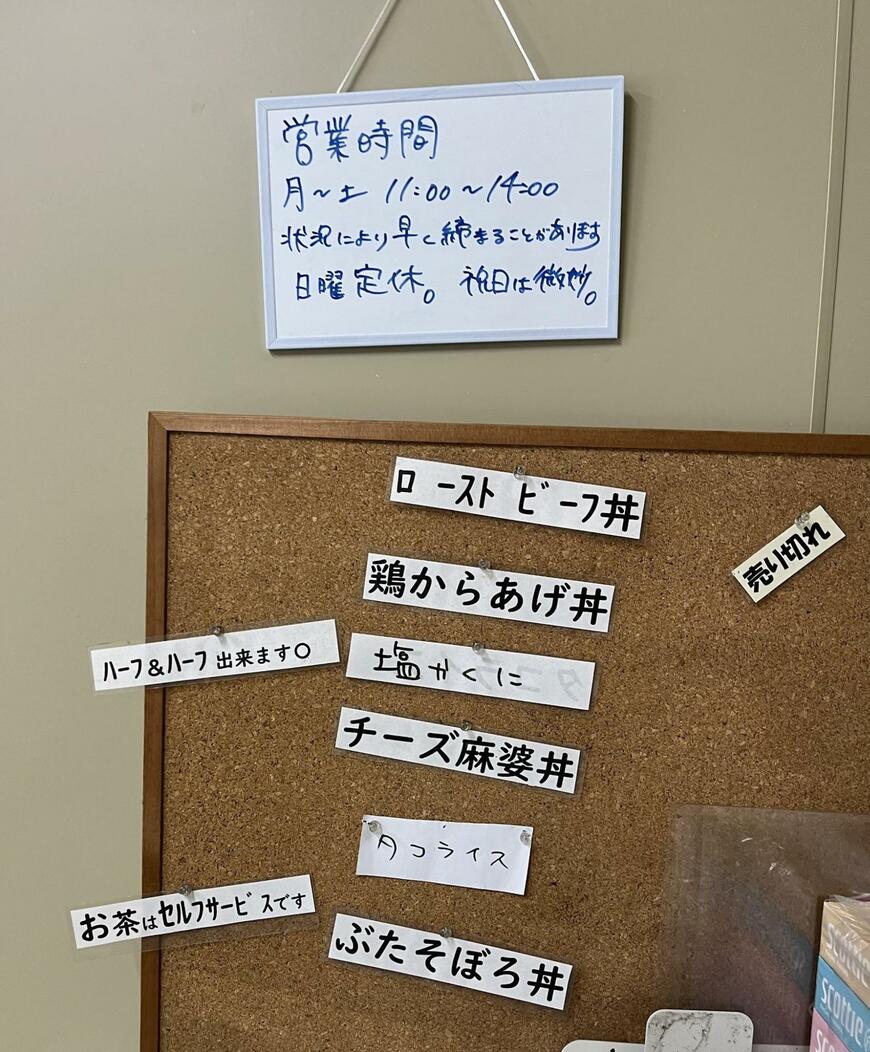 営業時間
月～土 11:00～14:00
状況により早く締まることがあります
日曜定休。 祝日は微妙。
ローストビーフ丼
売り切れ
鶏からあげ丼
ハーフ&ハーフ 出来ます〇
塩かくに
チーズ麻婆丼
タコライス
お茶はセルフサービスです
ぶたそぼろ丼
scottie
scottie